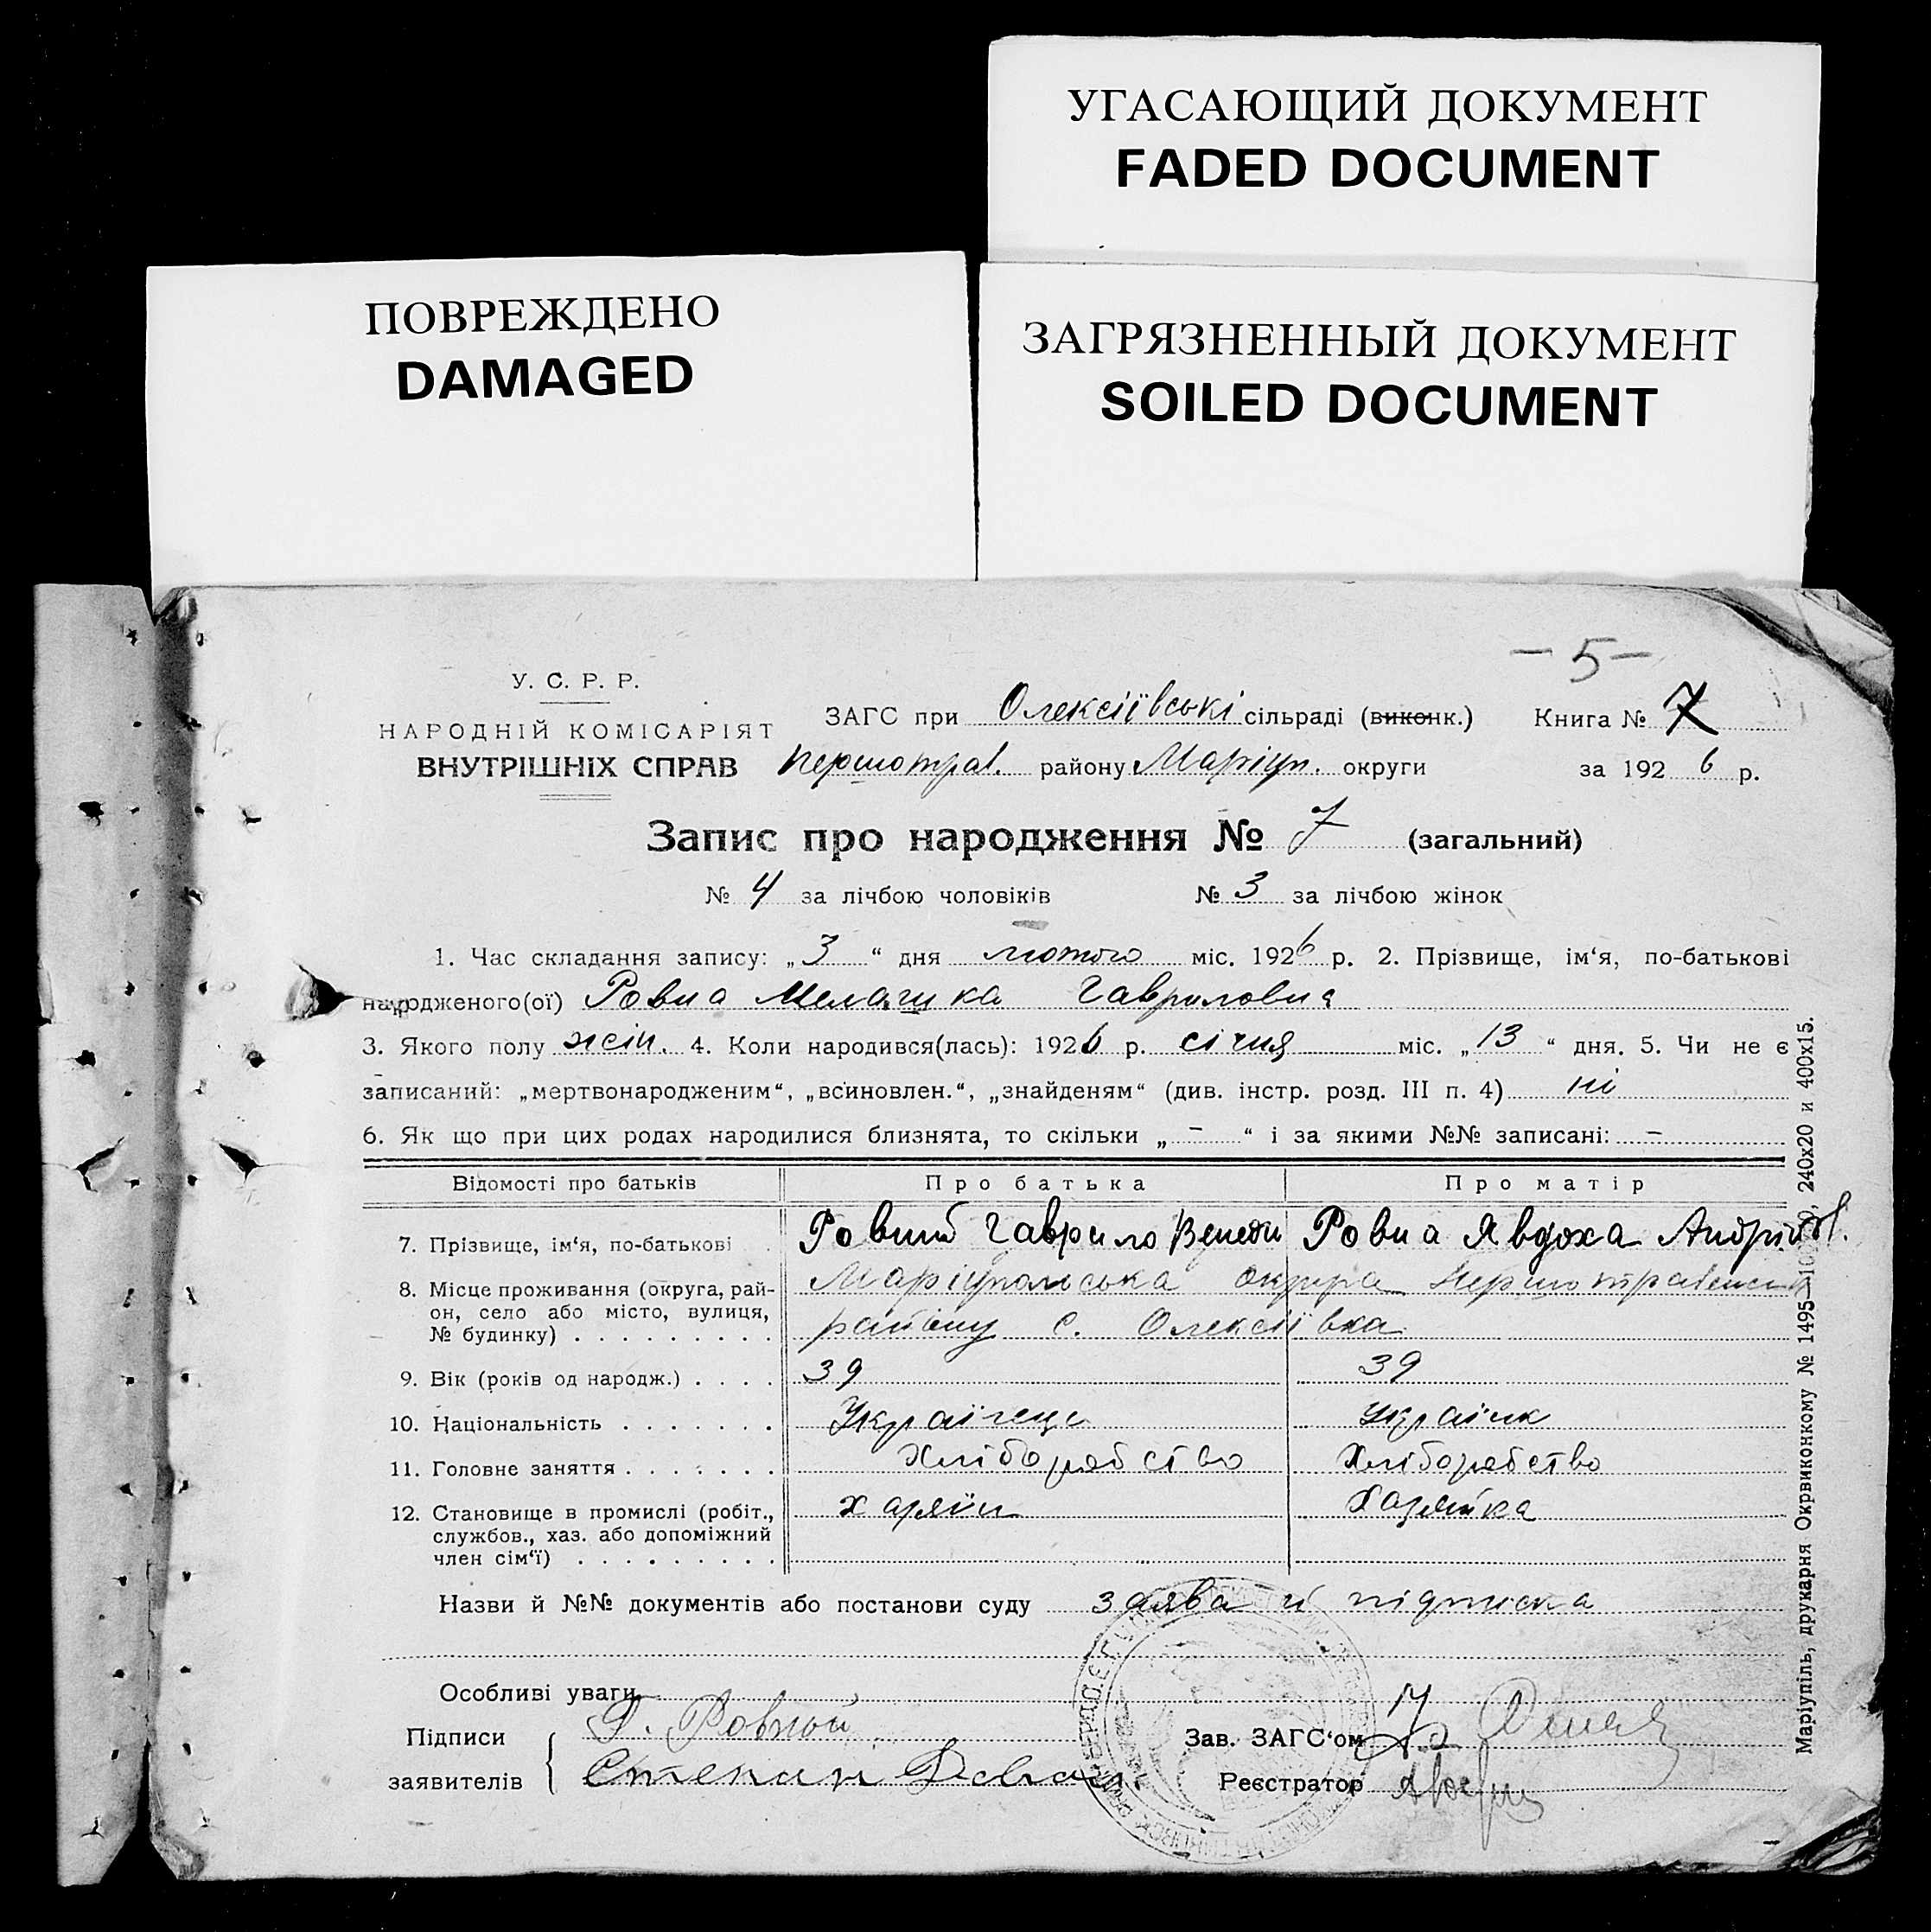 УГАСАЮЩИЙ ДОКУМЕНТ
FADED DOCUMENT
ПОВРЕЖДЕНО
DAMAGED
ЗАГРЯЗНЕННЫЙ ДОКУМЕНТ
SOILED DOCUMENT
– 5 –
У. С. Р. Р.
НАРОДНІЙ КОМІСАРІЯТ
ВНУТРІШНІХ СПРАВ
ЗАГС при Олексіївські сільраді (виконк.) Книга № 7
Першотрав. району Маріуп. округи за 1926 р.
Запис про народження № 7 (загальний)
№ 4 за лічбою чоловіків № 3 за лічбою жінок
1. Час складання запису: „3“ дня лютого міс. 1926 р. 2. Прізвище, ім‘я, по-батькові
народженого(ої) Ровна Мелашка Гавриловна
3. Якого полу жін. 4. Коли народився(лась): 1926 р. січня міс. „13“ дня. 5. Чи не є
записаний: „мертвонародженим“, „всиновлен.“, „знайденям“ (див. інстр. розд. III п. 4) ні
6. Як що при цих родах народилися близнята, то скільки „–“ і за якими №№ записані: –
Відомості про батьків Про батька Про матір
7. Прізвище, ім‘я, по-батькові Ровний Гаврило Венеди Ровна Явдоха Андріїв.
8. Місце проживання (округа, рай- Маріупольська округа Першотравенськ
он, село або місто, вулиця, району с. Олексіївка
№ будинку)
9. Вік (років од народж.) 39 39
10. Національність Українець Українк
11. Головне заняття Хліборобство Хліборобство
12. Становище в промислі (робіт., хазяїн Хазяйка
службов., хаз. або допоміжний
член сім‘ї)
Назви й №№ документів або постанови суду заява й підписка
Особливі уваги
Підписи Г. Ровной Зав. ЗАГС‘ом
заявителів Степан Реєстратор
Маріупіль, друкарня Окрвиконкому № 1495 240х20 и 400х15.